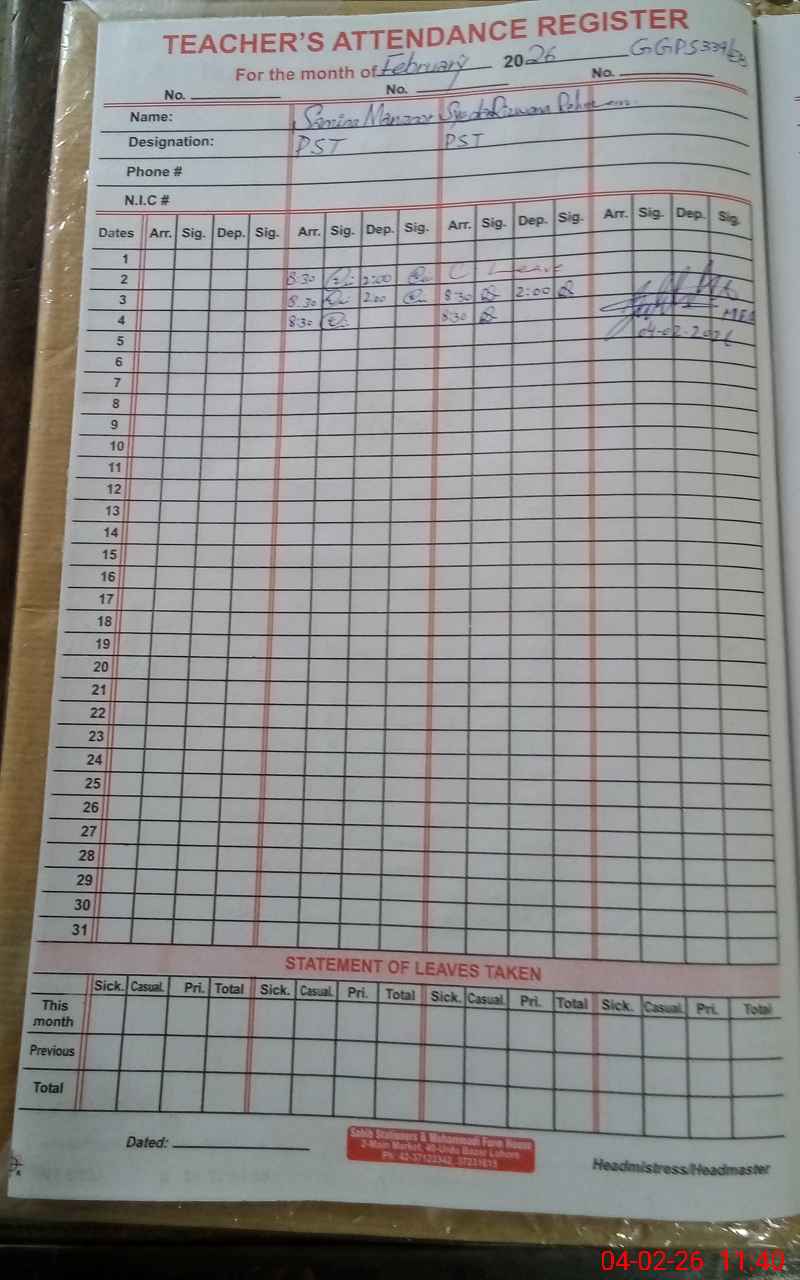 TEACHER'S ATTENDANCE REGISTER
For the month of February 2026 GGPS 334/EB
No. No. No.
Name: Samina Manzoor Syeda Rizwana
Designation: PST PST
Phone #
N.I.C #
Dates Arr. Sig. Dep. Sig. Arr. Sig. Dep. Sig. Arr. Sig. Dep. Sig. Arr. Sig. Dep. Sig.
1
2 8:30 2:00 C Leave
3 8:30 2:00 8:30 2:00
4 8:30 8:30 MEA
5 04-02-2026
6
7
8
9
10
11
12
13
14
15
16
17
18
19
20
21
22
23
24
25
26
27
28
29
30
31
STATEMENT OF LEAVES TAKEN
Sick. Casual. Pri. Total Sick. Casual. Pri. Total Sick. Casual. Pri. Total Sick. Casual. Pri. Total
This month
Previous
Total
Dated:
Sahib Stationers & Muhammadi Form House
2-Main Market, 40-Urdu Bazar Lahore
Ph: 42-37123342, 37231613
Headmistress/Headmaster
04-02-26 11:40